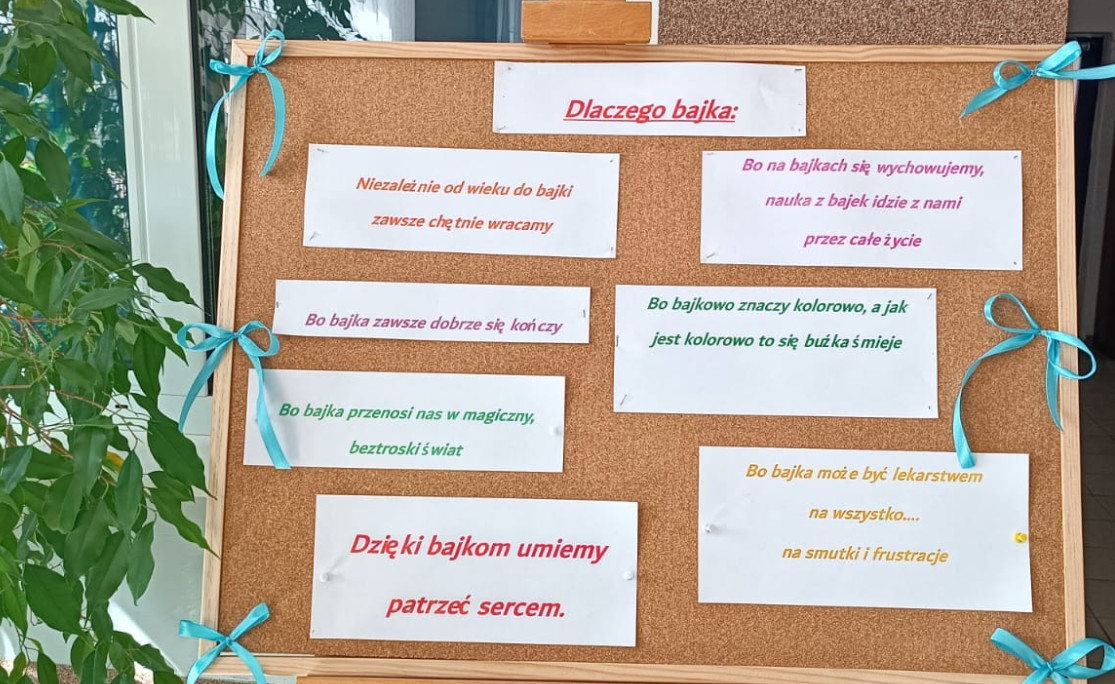 Dlaczego bajka:
Niezależnie od wieku do bajki
zawsze chętnie wracamy
Bo na bajkach się wychowujemy,
nauka z bajek idzie z nami
przez całe życie
Bo bajka zawsze dobrze się kończy
Bo bajkowo znaczy kolorowo, a jak
jest kolorowo to się buźka śmieje
Bo bajka przenosi nas w magiczny,
beztroski świat
Bo bajka może być lekarstwem
na wszystko....
na smutki i frustracje
Dzięki bajkom umiemy
patrzeć sercem.